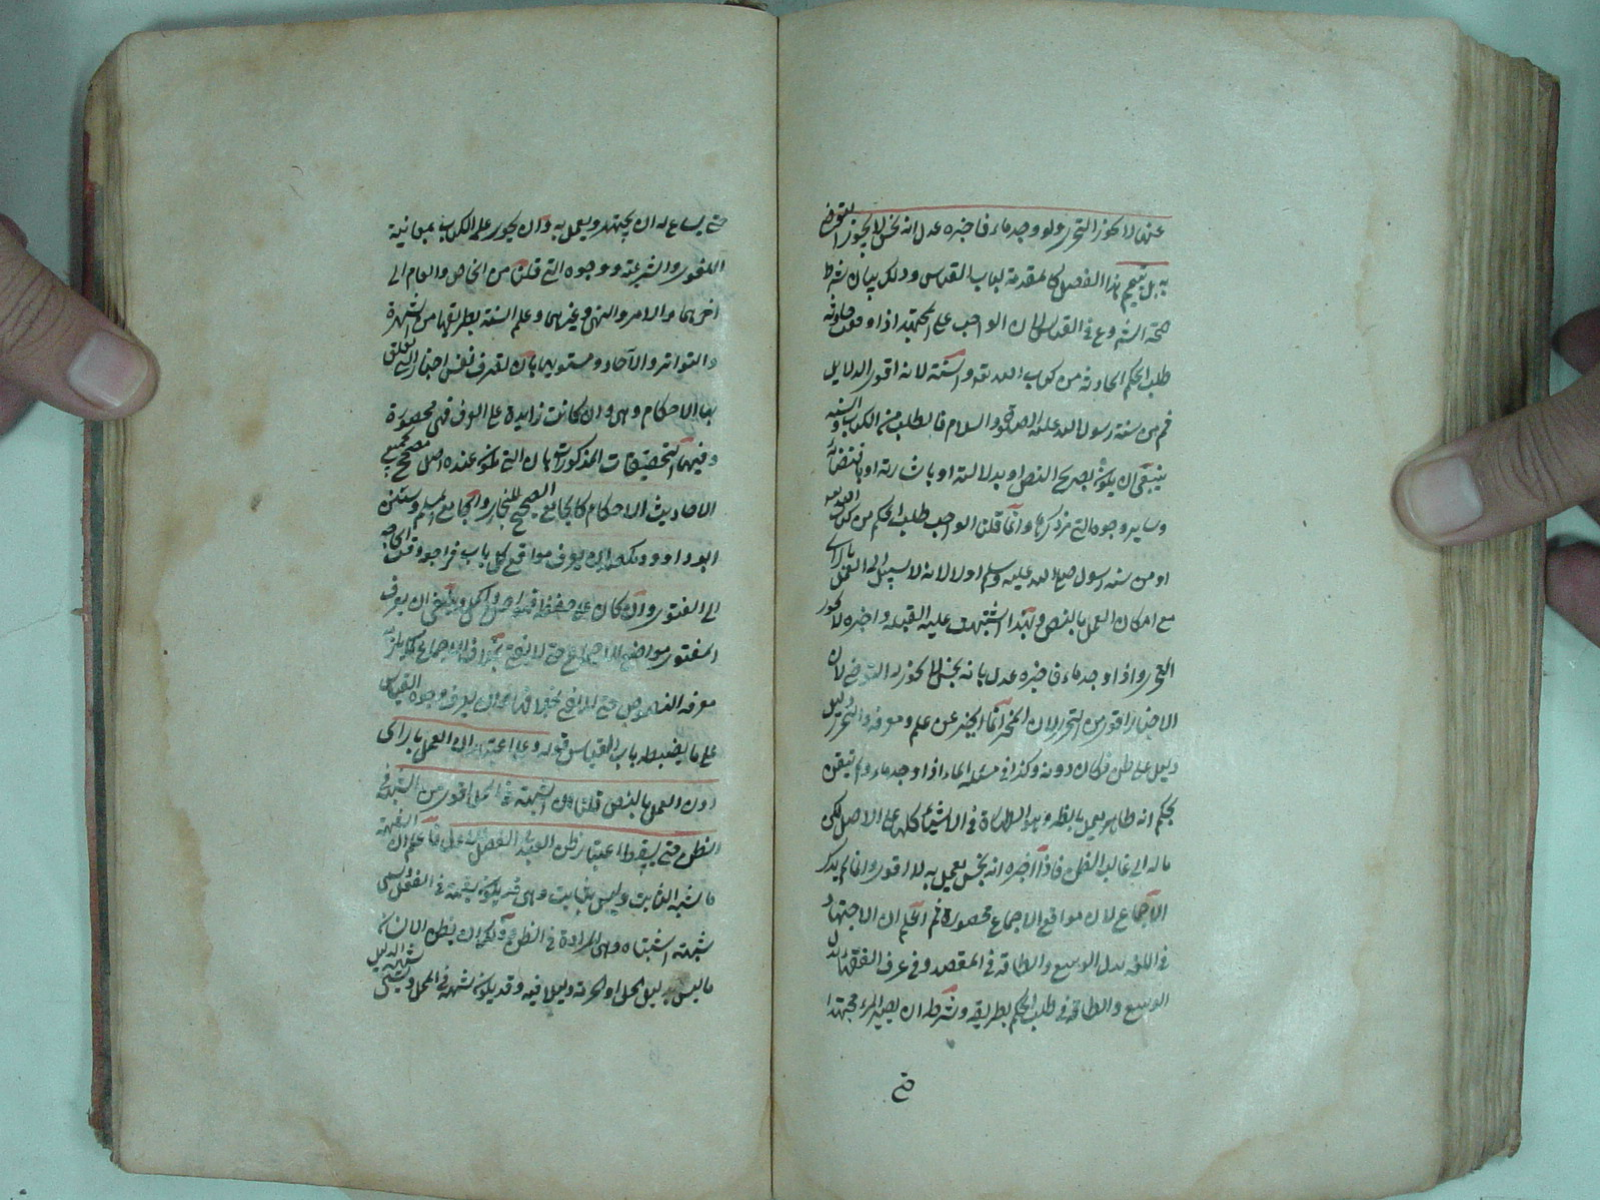 عندنا لا يجوز التحرى ولو وجد ماء فاخبره عدل انه نجس لا يجوز التوضى
به بل يتيمم هذا الفصل كالمقدمة لباب القياس وذلك بيان شرط
صحة الشروع فى القياس لان الواجب على المجتهد اذا وقعت حادثة
طلب الحكم الحادثة من كتاب الله تعالى والسنة لانه اقوى الدلايل
ثم من سنة رسول الله عليه الصلوة والسلام فالطلب من الكتاب والسنة
ينبغى ان يكون بصريح النص او بدلالته او باشارته او باقتضائه
وساير وجوه التى مر ذكرها وانما قلنا الواجب طلب الحكم من كتاب الله تعالى
او من سنة رسول صلى الله عليه وسلم اولا لانه لا سبيل الى العمل بالراى
مع امكان العمل بالنص ولهذا اذا اشتبهت عليه القبلة واخبره لا يجوز
التحرى واذا وجد ماء فاخبره عدل بانه نجس لا يجوز له التوضى لان
الاخبار اقوى من التحرى لان المخبر انما يخبر عن علم ومعرفة والتحرى دليل
دليل على ظن فكان دونه وكذا فى مسئلة الماء اذا وجد ماء ولم يتيقن
بحكم انه طاهر يعمل بالظاهر وهو الطهارة فى الاشياء كلها على الاصل لكن
ماله الى غالب الظن فاذا اخبره انه نجس يعمل به لانه اقوى وانما لم يذكر
الاجماع لان مواقع الاجماع محصورة ثم اعلم ان الاجتهاد
فى اللغة بذل الوسع والطاقة فى المقصد وفى عرف الفقهاء بذل
الوسع والطاقة فى طلب الحكم بطريقه وشرطه ان يصير المرء مجتهدا
حتى
حتى يساع له ان يجتهد ويعمل به وان يحوى علم الكتاب بمعانيه
اللغوى والشرعية ووجوه التى قلنا من الخاص والعام الى
اخرهما والامر والنهى وغيرهما وعلم السنة بطريقها من الشهرة
والتواتر والآحاد ومتونها بان يعرف نفس اخبار التى تتعلق
بها الاحكام وهى وان كانت زايدة على الوف فهى محصورة
وفيها التحقيقات المذكورات بان التى يكون عنده اصل مصحح يجمع
الاحاديث الاحكام كالجامع الصحيح للبخارى والجامع لمسلم وسنن
ابو داود ويكفيه ان يعرف مواقع كل باب فراجع وقت الحاجة
الى الفتوى وان كان على حفظه فهو احسن واكمل وينبغى ان يعرف
المفتى مواضع الاجماع حتى لا يفتى بخلاف الاجماع كما يلزم
معرفة النصوص حتى لا يفتى بخلافها وان يعرف وجوه القياس
على ما يضبطه باب القياس قوله وعلى اعتبار ان العمل بالراى
دون العمل بالنص قلنا ان الشبهة فى المحل اقوى من الشبهة فى
الظن حتى يسقط اعتبار ظن العبد فى الفصل الاول فاعلم ان الشبهة
ما يشبه الثابت وليس بثابت وهى قد يكون شبهة فى الفعل وتسمى
شبهة اشتباه وهى المرادة فى الظن وذلك ان يظن الانسان
ما ليس بدليل الحل او الحرمة دليلا فيه وقد يكون شبهة فى المحل وتسمى شبهة الدليل